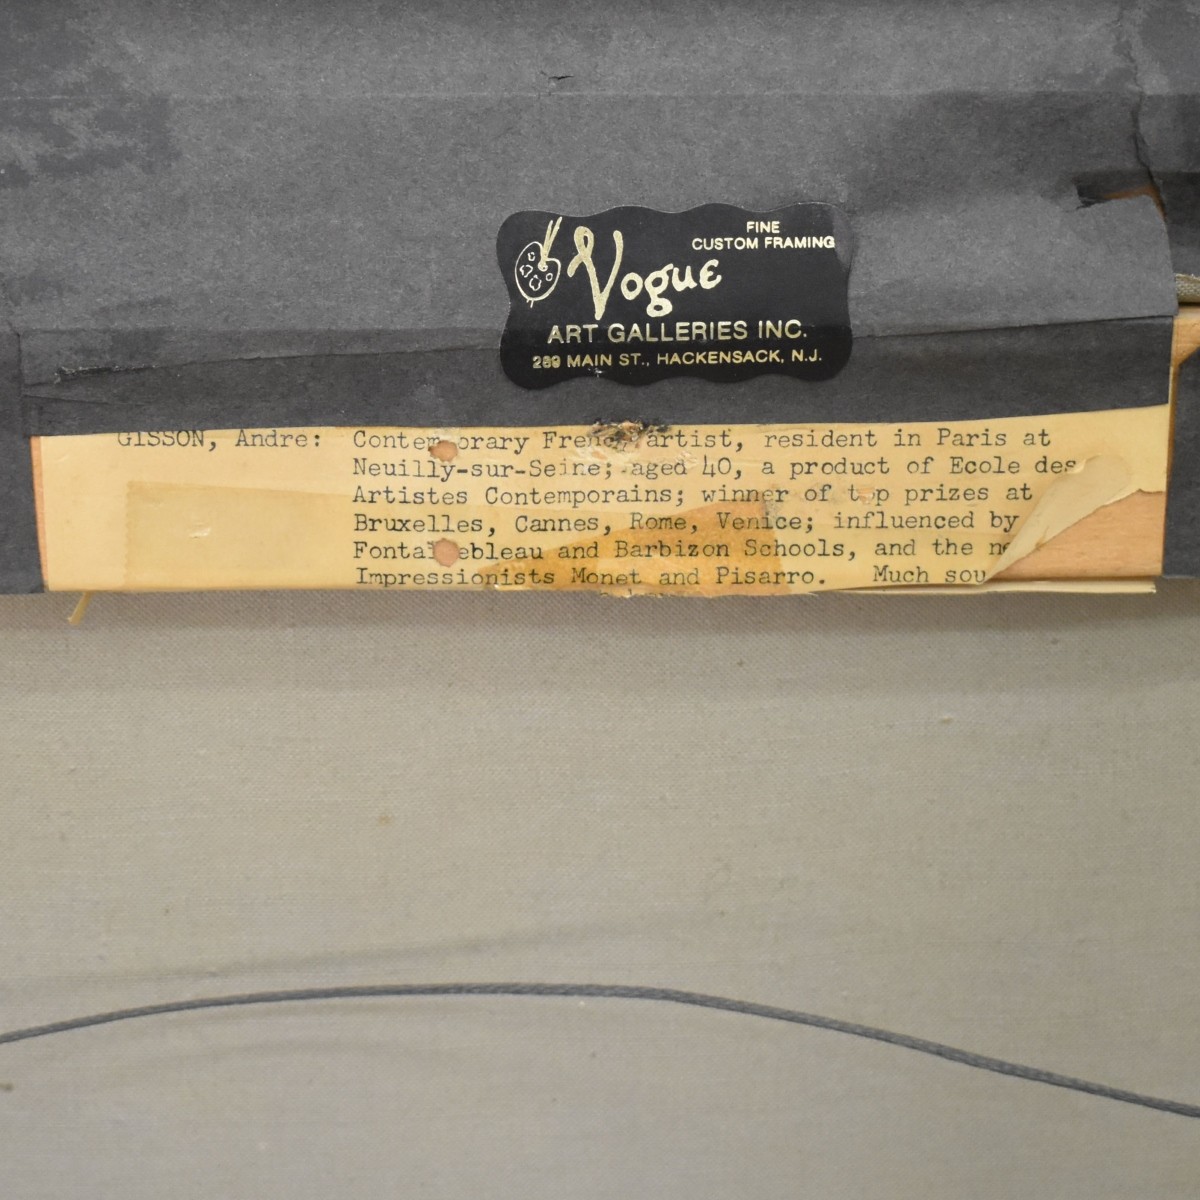 FINE
CUSTOM FRAMING
Vogue
ART GALLERIES INC.
MAIN ST., HACKENSACK, N.J.
GISSON, Andre: Contem orary French artist, resident in Paris at
Neuilly-sur-Seine; aged 40, a product of Ecole des
Artistes Contemporains; winner of top prizes at
Bruxelles, Cannes, Rome, Venice; influenced by
Fonta ebleau and Barbizon Schools, and the
Impressionists Monet and Pisarro. Much sou